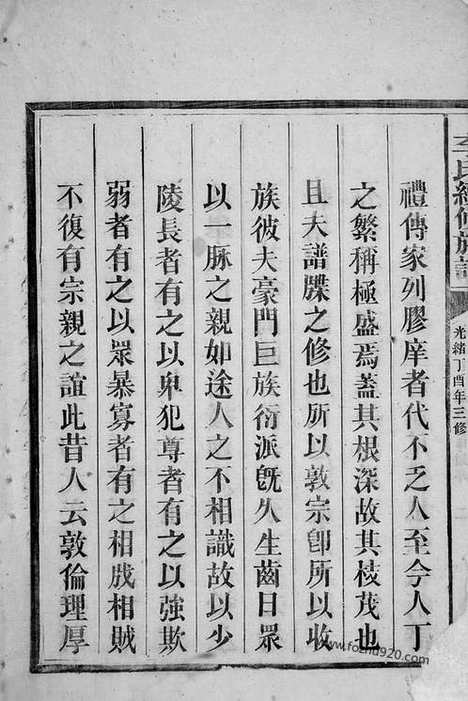 李氏續修族譜
光緒丁酉年三修
禮傳家列膠庠者代不乏人至今人丁
之繁稱極盛焉蓋其根深故其枝茂也
且夫譜牒之修也所以敦宗卽所以收
族彼夫豪門巨族衍派旣久生齒日眾
以一脉之親如途人之不相識故以少
陵長者有之以卑犯尊者有之以強欺
弱者有之以眾暴寡者有之相戕相賊
不復有宗親之誼此昔人云敦倫理厚
www.fozhu920.com